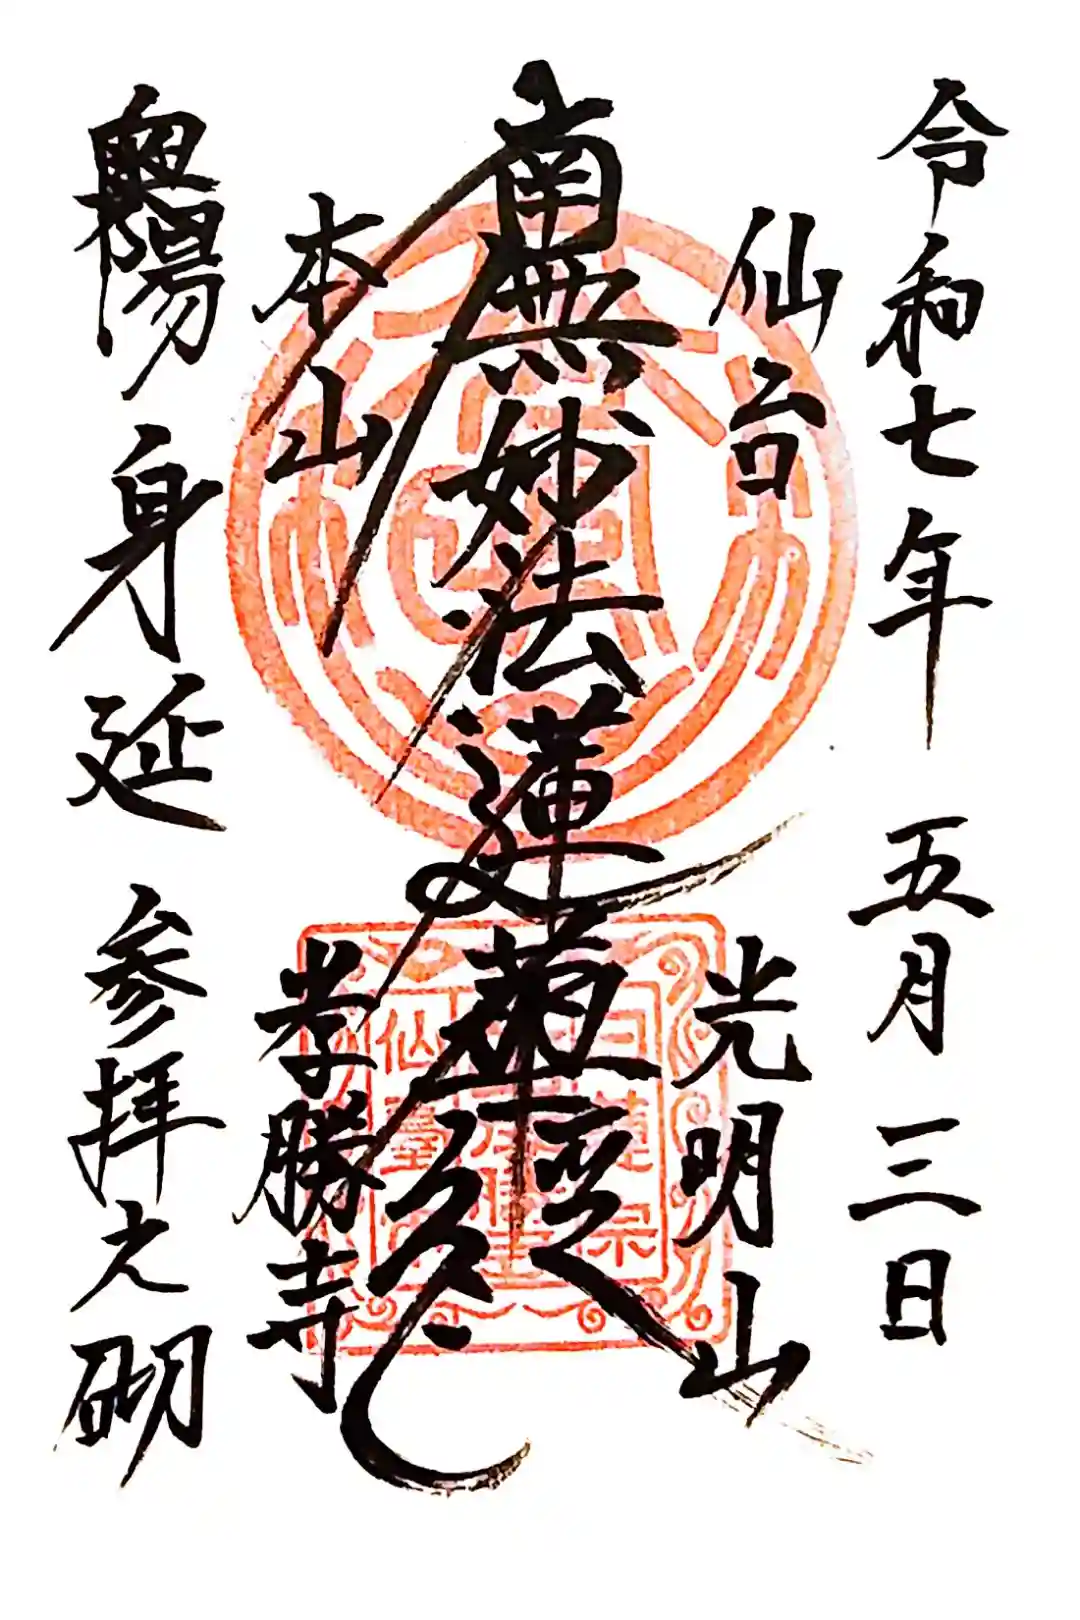 令和七年 五月三日
仙台 光明山
南無妙法蓮華経
本山 孝勝寺
陽 身延 参拝之砌
日蓮宗
仙臺